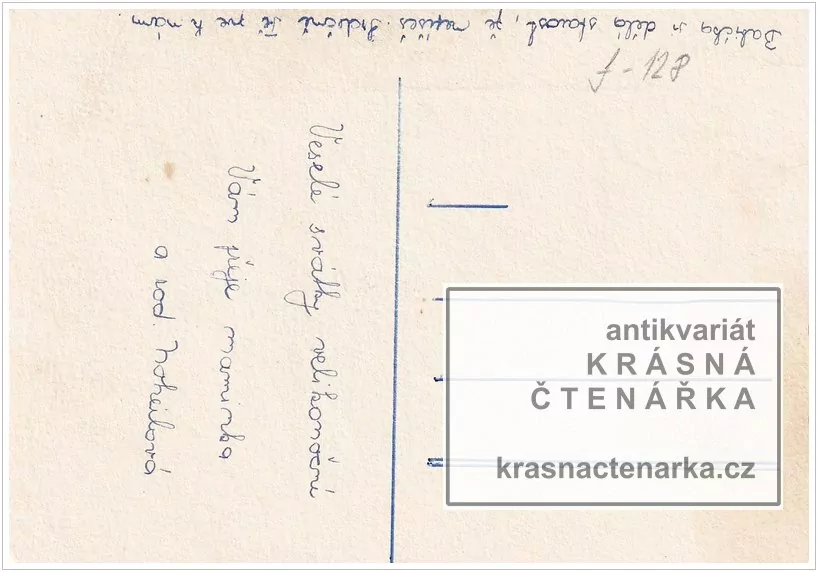 Babička si dělá starost, že nepíšeš. Srdečně Tě zve k nám.
f-128
Veselé svátky velikonoční
Vám přeje maminka
a rod.
antikvariát
KRÁSNÁ
ČTENÁŘKA
krasnactenarka.cz